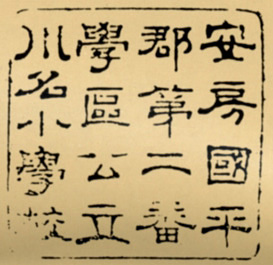 安房國平
郡第二番
學區公立
川名小學校